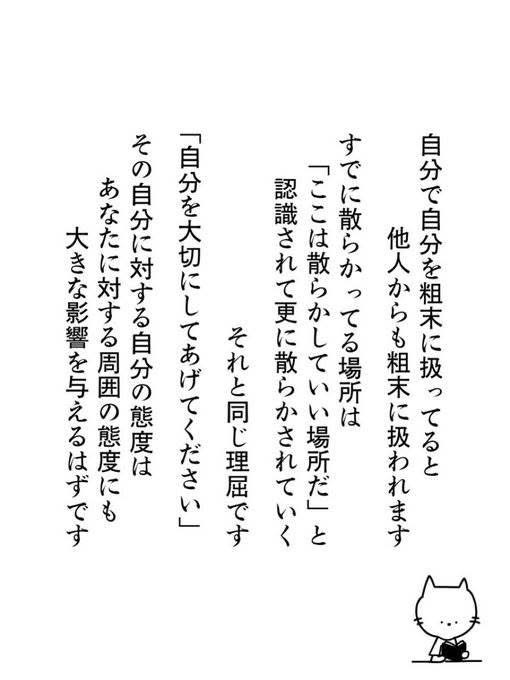 自分で自分を粗末に扱ってると
他人からも粗末に扱われます
すでに散らかってる場所は
「ここは散らかしていい場所だ」と
認識されて更に散らかされていく
それと同じ理屈です
「自分を大切にしてあげてください」
その自分に対する自分の態度は
あなたに対する周囲の態度にも
大きな影響を与えるはずです